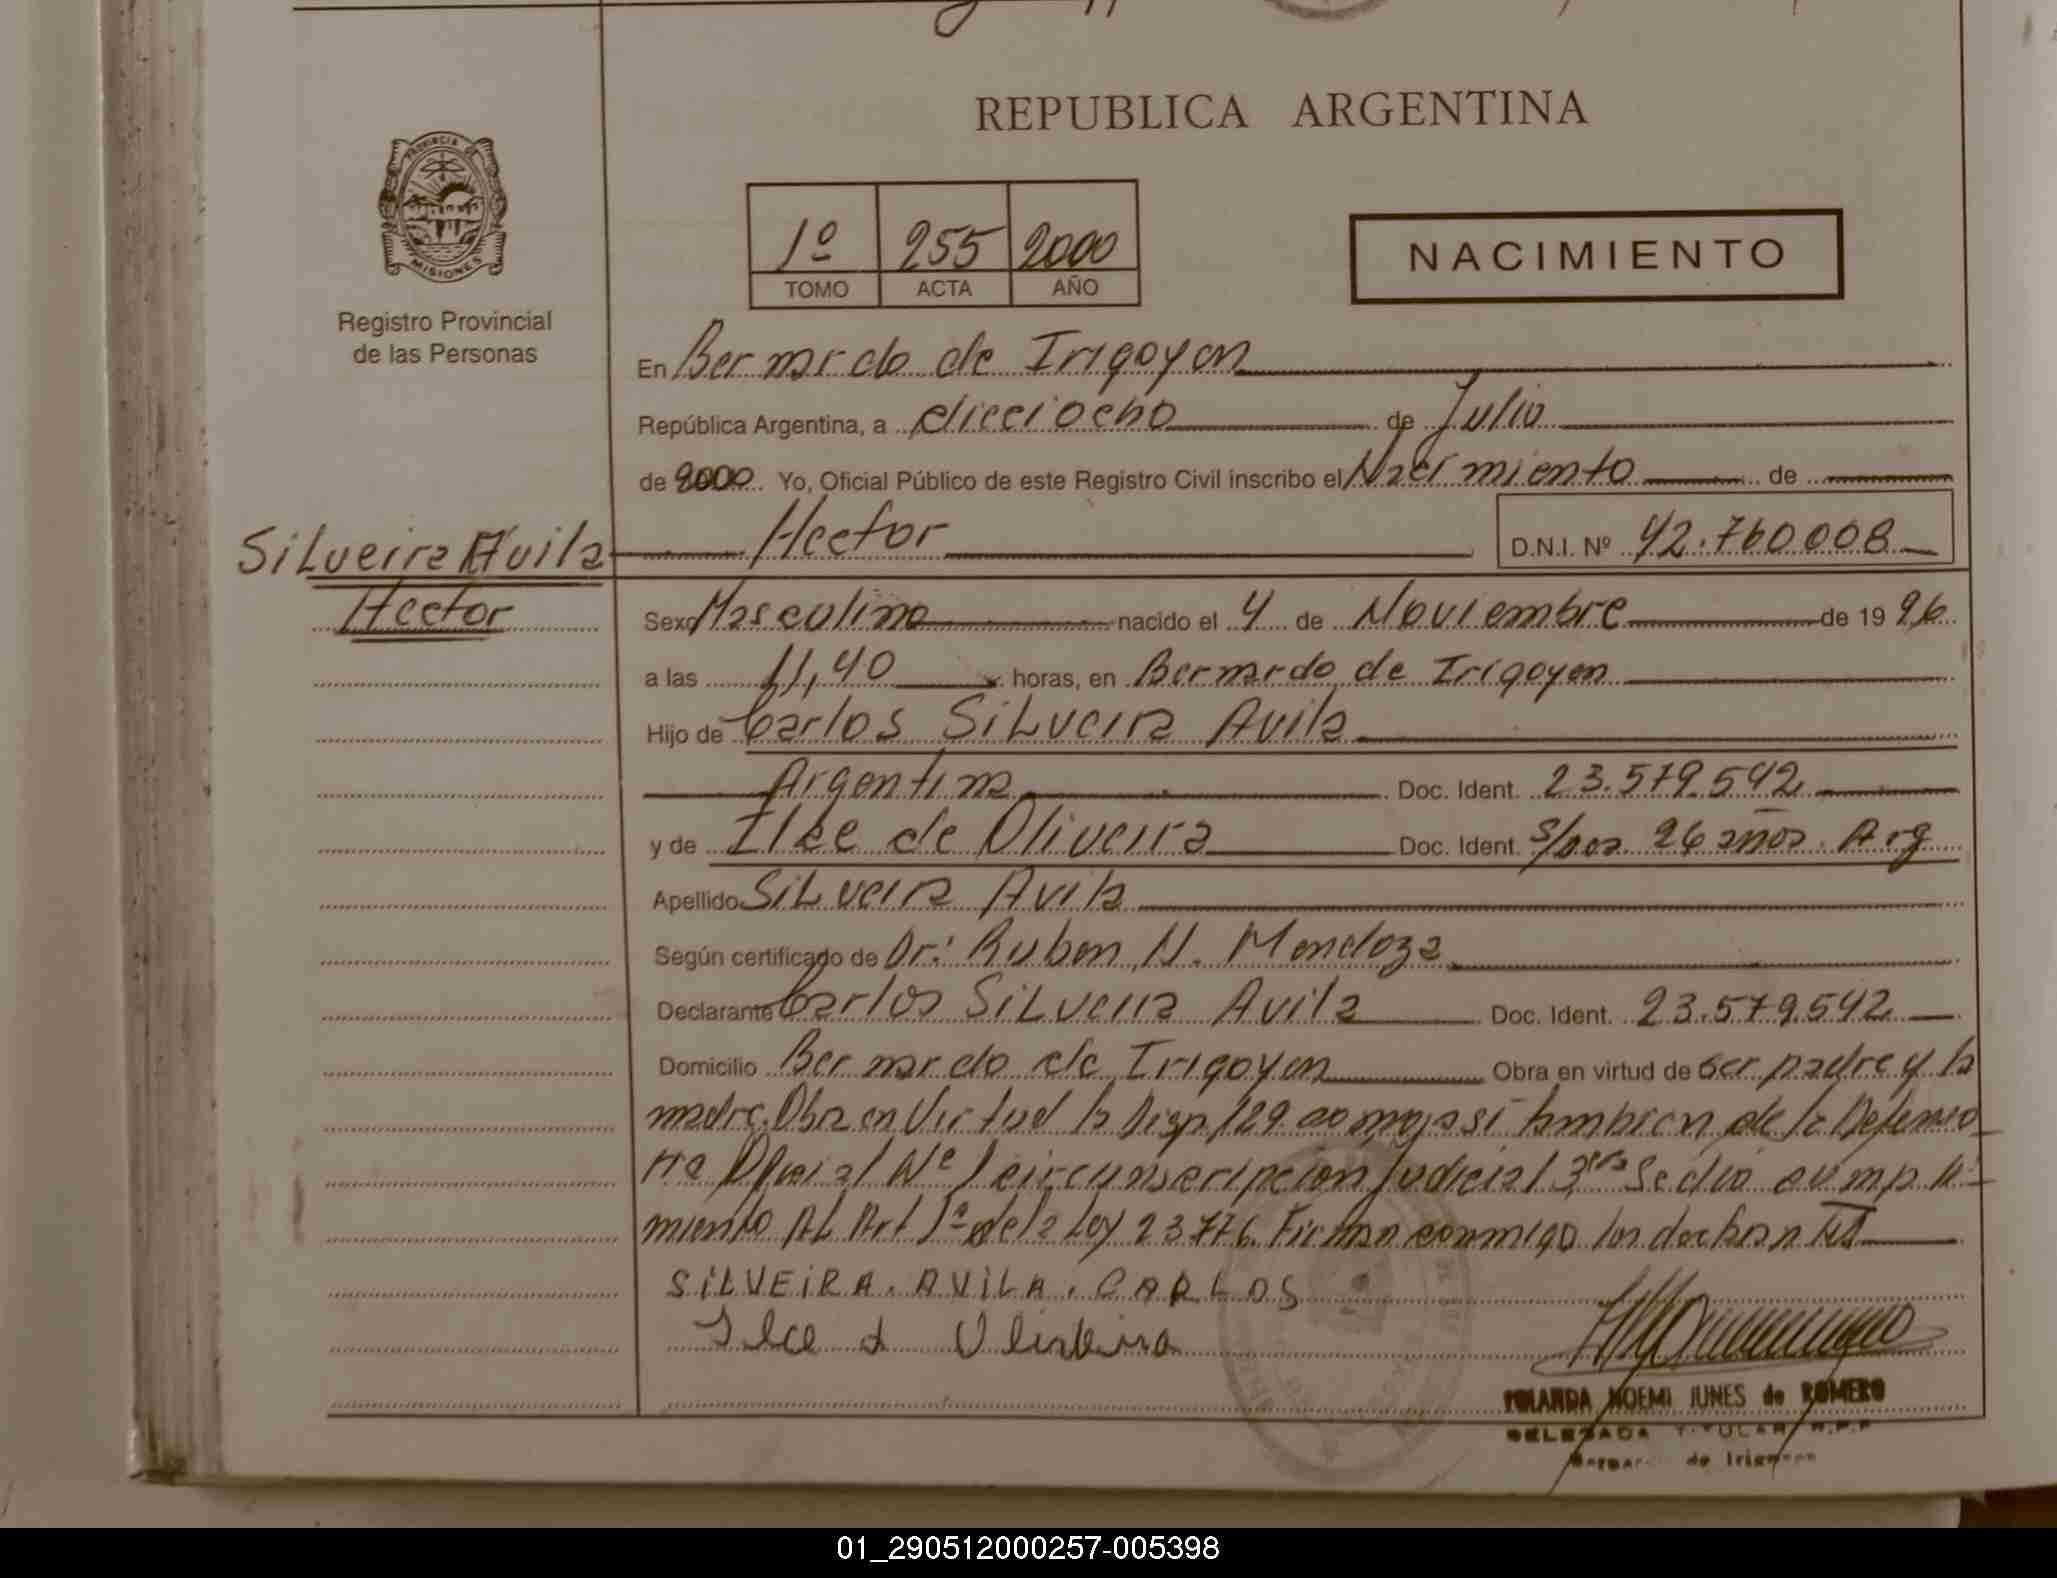 REPUBLICA ARGENTINA
PROVINCIA DE
MISIONES
Registro Provincial
de las Personas
1º 255 2000
TOMO ACTA AÑO
NACIMIENTO
En Bernardo de Irigoyen
República Argentina, a dieciocho de Julio
de 2000 Yo, Oficial Público de este Registro Civil inscribo el Nacimiento de
Silveira Avila
Hector
Hector D.N.I. Nº 42.760.008
Sexo Masculino nacido el 4 de Noviembre de 1996
a las 11,40 horas, en Bernardo de Irigoyen
Hijo de Carlos Silveira Avila
Argentina Doc. Ident. 23.579.542
y de Ilce de Oliveira Doc. Ident. 26 años. Arg
Apellido Silveira Avila
Según certificado de Dr: Ruben N. Mendoza
Declarante Carlos Silveira Avila Doc. Ident. 23.579.542
Domicilio Bernardo de Irigoyen Obra en virtud de ser padre y la
madre. Obra en Virtud la Disp. 129 como asi tambien de la Defenso
ria Oficial Nº 1 circunscripcion Judicial 3ra Se dio cumpli
miento Al Art 1º de la Ley 23.776. Firman conmigo los declarantes
SILVEIRA. AVILA. CARLOS
Ilce d Oliveira
YOLANDA NOEMI JUNES de ROMERO
DELEGADA TITULAR R.P.P
Bernardo de Irigoyen
01_290512000257-005398